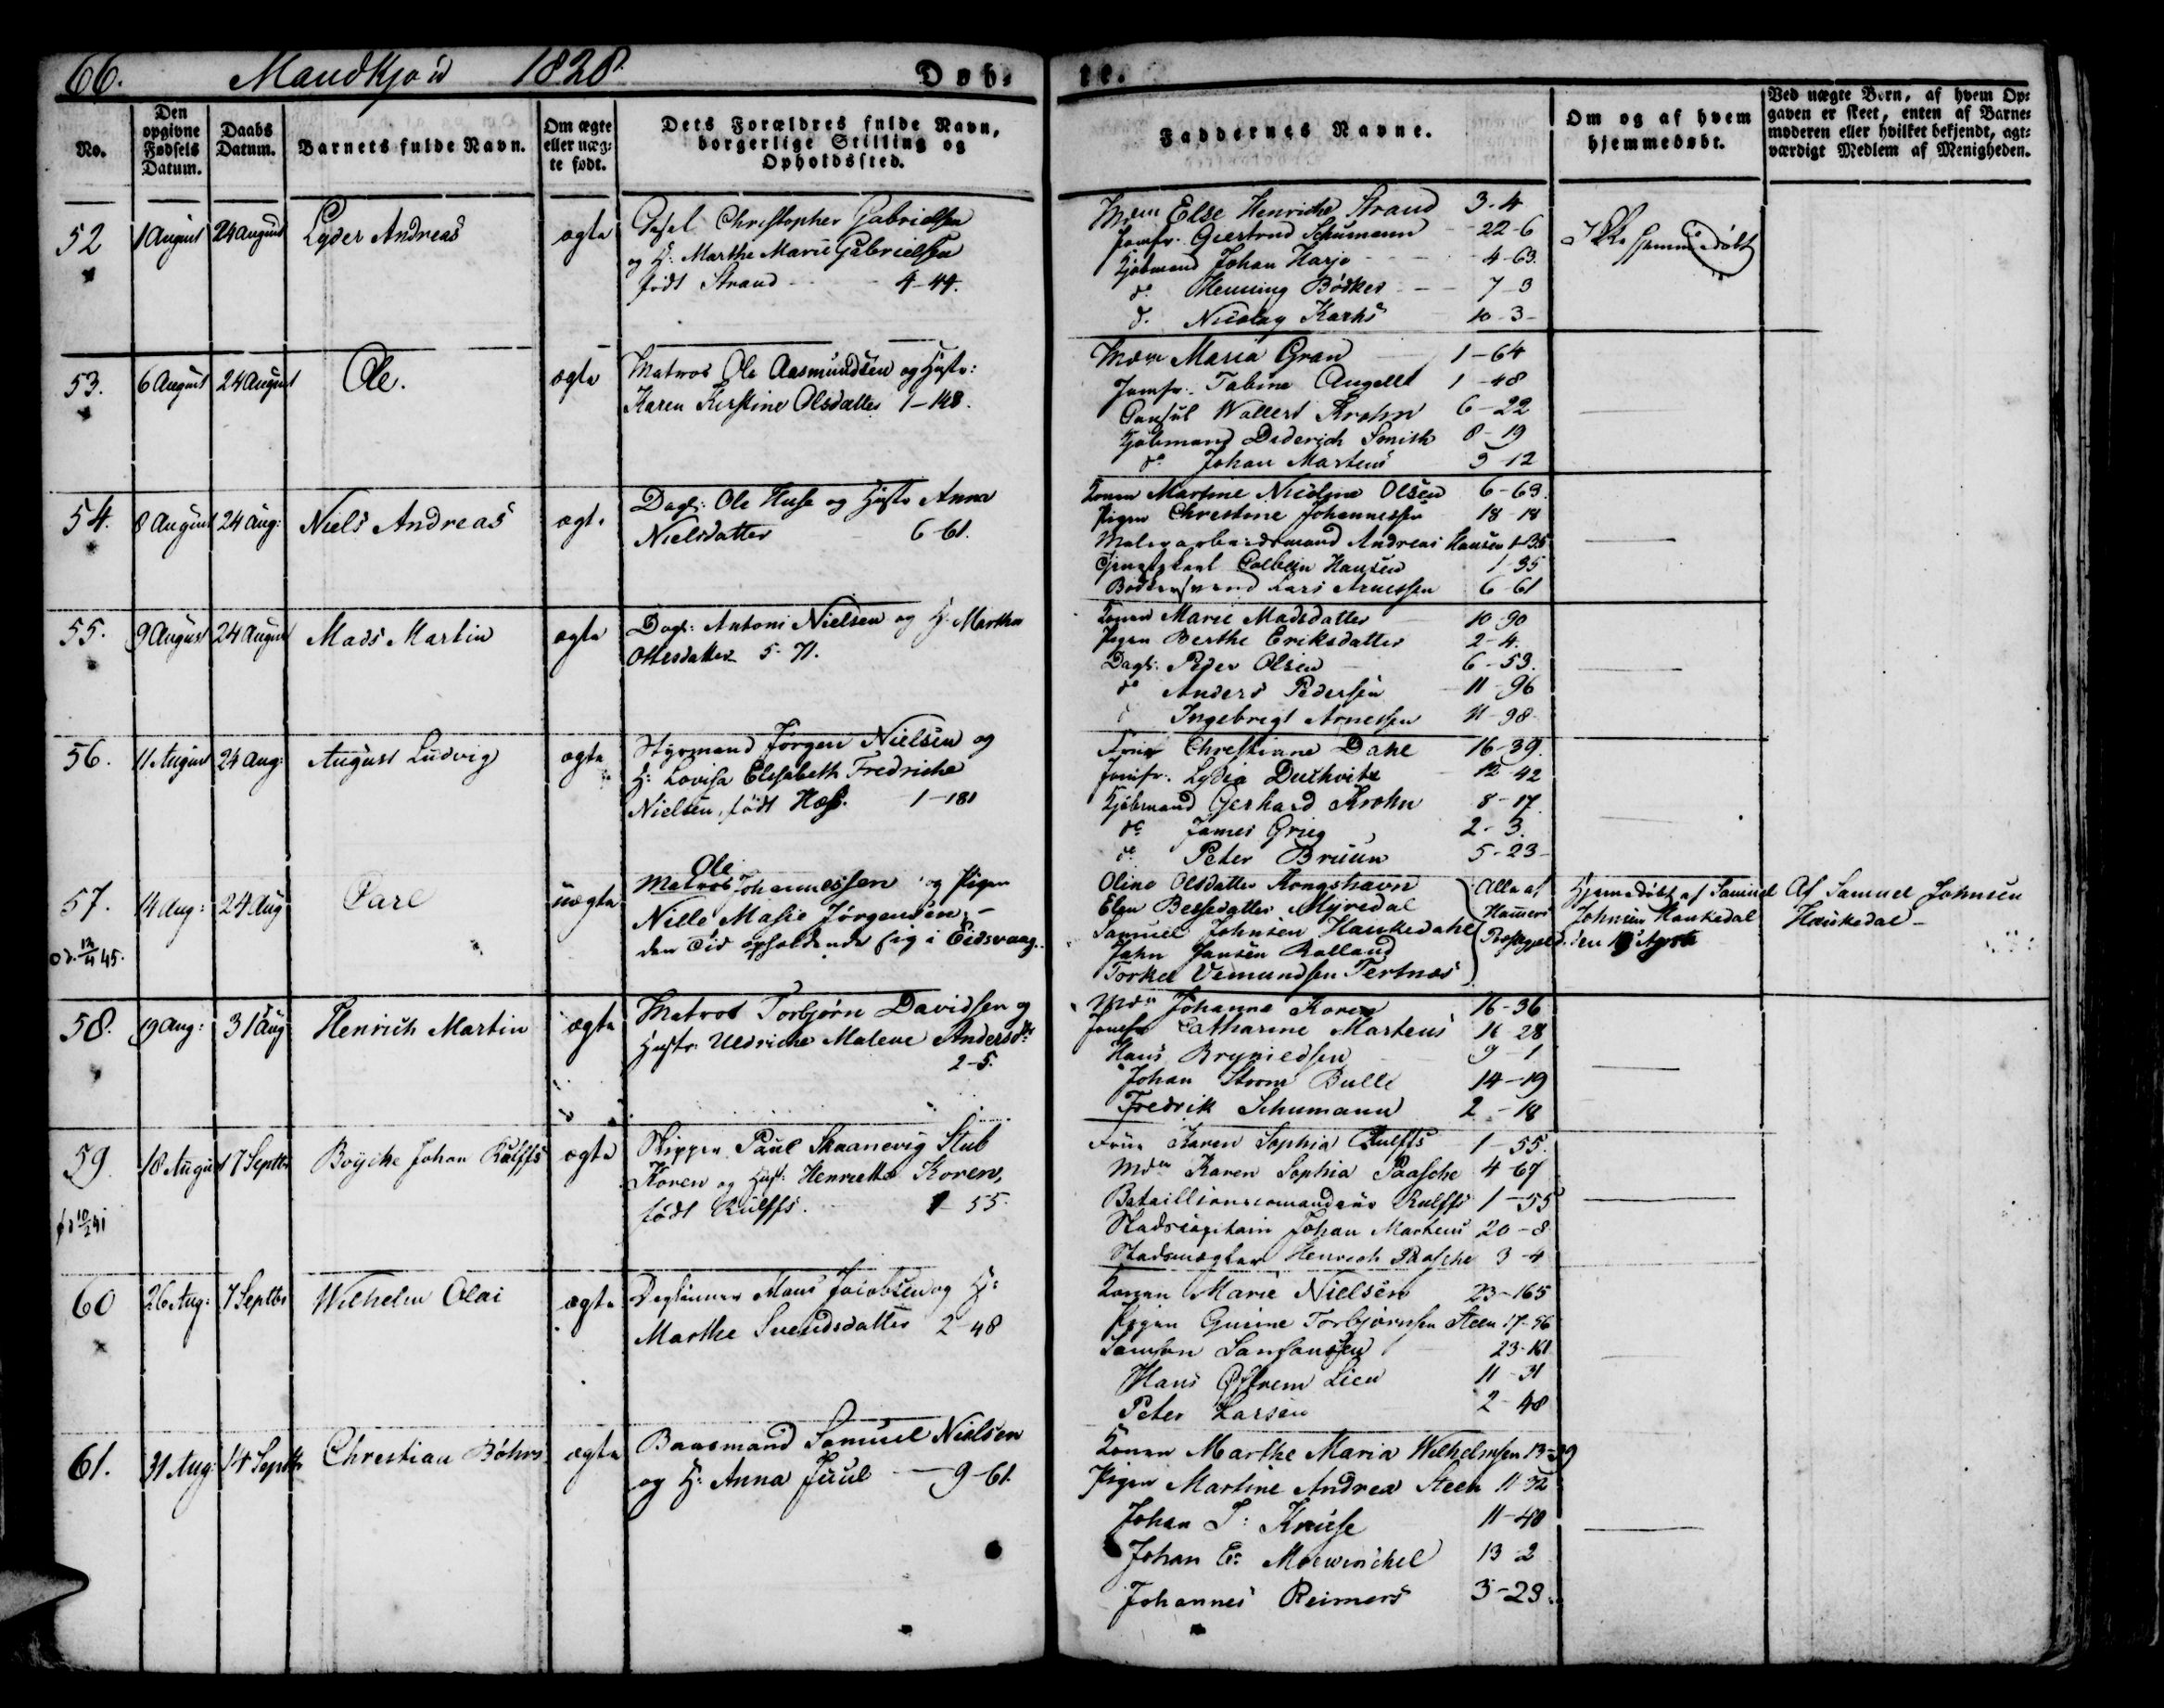 66. Mandkjøn 1828. Døb-
te.
No.
Den opgivne Fødsels Datum.
Daabs Datum.
Barnets fulde Navn.
Om ægte eller uæg-te født.
Dets Forældres fulde Navn, borgerlige Stilling og Opholdssted.
Faddernes Navne.
Om og af hvem hjemmedøbt.
Ved uægte Børn, af hvem Op-gaven er skeet, enten af Barne-moderen eller hvilket bekjendt, agt-værdigt Medlem af Menigheden.
52 1 August 24 august Lyder Andreas ægte
Christopher Gabrielsen
og H: Marthe Marie Gabrielsen
født Strand 4-44.
Mdm Else Henriche Strand 3-4
Jomfr. Geertrud Schumann 22-6
Kjøbmand Johan Harje 4-63.
do. Henning Bødker 7-3
do. Nicolay Karhs 10-3
Ikke hjemmedøbt
53. 6 August 24 August Ole. ægte
Matros Ole Aasmundsen og Hustr:
Karen Kirstine Olsdatter 1-148.
Mdm Maria Gran 1-64
Jomfr. Tabine Angell 1-48
Consul Wollert Krohn 6-22
Kjøbmand Diderich Smith 8-19
do Johan Martens 5-12
54. 8 August 24 Aug: Niels Andreas ægte
Dagl: Ole Huse og Hustr Anna
Nielsdatter 6-61.
Konen Martine Nicoline Olsen 6-63.
Pigen Christine Johannessen 18-18
Andreas Hansen 1-35
Colbein Hansen 1-35
Lars Arnessen 6-61
55. 9 August 24 August Mads Martin ægte
Dagl: Antoni Nielsen og H: Marthe
Ottesdatter 5-71.
Konen Marie Madsdatter 10-90
Pigen Berthe Eriksdatter 2-4.
Dagl: Peder Olsen 6-53.
do Anders Pedersen 11-96
Ingebrigt Arnessen 11-98
56. 11 August 24 Aug: August Ludvig ægte
Styrmand Jørgen Nielsen og
H: Lovisa Elisabeth Fredriche
Nielsen, født Hass. 1-181
Frue Christiane Dahl 16-39.
Jomfr. Lydia Duckvitz 12-42
Kjøbmand Gerhard Krohn 8-17.
do James Grieg 2-3.
do Peter Bruun 5-23
57. 14 Aug: 24 Aug Carl uægte
Matros Ole Johannessen og Pigen
Nille Marie Jørgensen,
den Tid opholdende sig i Eidsvaag.
Oline Olsdatter Kongshavn
Elen Myredal
Samuel Johnsen Haukedahl
John Jansen Rolland
Torkel Vemundsen Tertnæs
Alle af Hammers Præstegjeld.
Hjemmedøbt af Samuel Johnsen Haukedal
Af Samuel Johnsen
Haukedal
58. 19 Aug: 31 Aug Henrich Martin ægte
Matros Torbjørn Davidsen og
Hustr: Uldriche Malene Andersdtr
2-5.
Mdm Johanna Koren 16-36
Jomfr Catharine Martens 16-28
Hans Brynildsen 9-1
Johan Storm Bull 14-19
Fredrik Schumann 2-18
59. 18 August 7 Septbr Boycke Johan Rulffs ægte
Skipper Paul Skaanevig Stub
Koren og Hust: Henriette Koren,
født Rulffs. 1-55.
Frue Karen Sophia Rulffs 1-55.
Mdm Karen Sophia Paasche 4-67
Rulffs 1-55
Stadscapitain Johan Martens 20-8
Stadsmægler Henrich Paasche 3-4
60 26 Aug: 7 Septbr Wilhelm Olai ægte
Mons Jacobsen og H:
Marthe Svendsdatter 2-48
Konen Marie Nielsen 23-165
Pigen Gurine Torbjørnsen Steen 17-56
Samson Samsonsen 23-161
Hans Østrem Lien 11-31
Peter Larsen 2-48
61. 31 Aug: 14 Septbr Christian Böhrs ægte
Baasmand Samuel Nielsen
og H: Anna Juul 9-61.
Konen Marthe Maria Wilhelmsen 13-39
Pigen Martine Andrea Steen 11-32
Johan Kruse 11-40
Johan 13-2
Johannes Reimers 3-23.